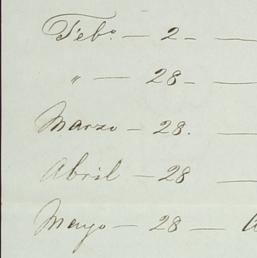 Febº. — 2 — —
„ — 28 — —
Marzo — 28. —
Abril — 28 —
Mayo — 28 —